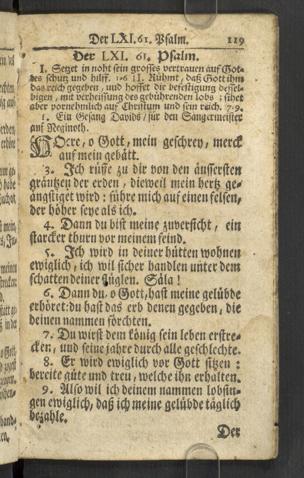 Der LXI. 61. Psalm. 119
Der LXI. 61. Psalm.
I. Setzet in noht sein grosses vertrauen auf Got-
des schutz und hilff. 1-6 II. Rühmt, daß Gott ihm
das reich gegeben, und hoffet die befestigung dessel-
bigen, mit verheissung des gebührenden lobs: sihet
aber vornehmlich auf Christum und sein reich. 7-9.
1. Ein Gesang Davids/ für den Sangermeister
auf Neginoth.
HOere, o Gott, mein geschrey, merck
auf mein gebätt.
3. Ich ruffe zu dir von den äussersten
gräntzen der erden, dieweil mein hertz ge-
ängstiget wird: führe mich auf einen felsen,
der höher seye als ich.
4. Dann du bist meine zuversicht, ein
starcker thurn vor meinem feind.
5. Ich wird in deiner hütten wohnen
ewiglich, ich wil sicher handlen unter dem
schatten deiner flüglen. Säla!
6. Dann du, o Gott, hast meine gelübde
erhöret: du hast das erb denen gegeben, die
deinen nammen förchten.
7. Du wirst dem könig sein leben erstre-
cken, und seine jahre durch alle geschlechte.
8. Er wird ewiglich vor Gott sitzen:
bereite güte und treu, welche ihn erhalten.
9. Also wil ich deinem nammen lobsin-
gen ewiglich, daß ich meine gelübde täglich
bezahle.
Der